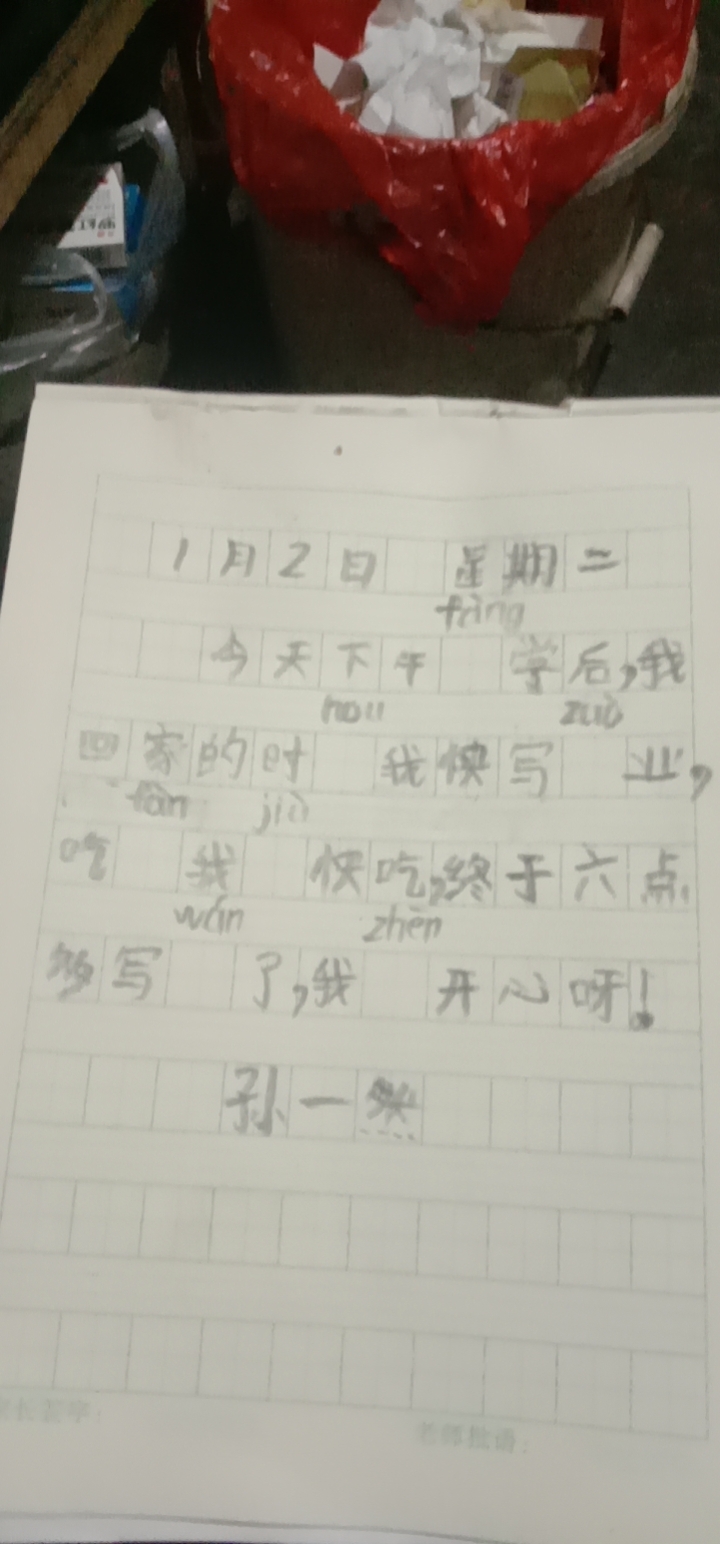 1月2日 星期二
fàng
今天下午 学后,我
hou zuò
回家的时 我快写 业,
fàn jiù
吃 我 快吃,终于六点
wán zhēn
够写 了,我 开心呀!
孙一然
家长签字:
老师批语: